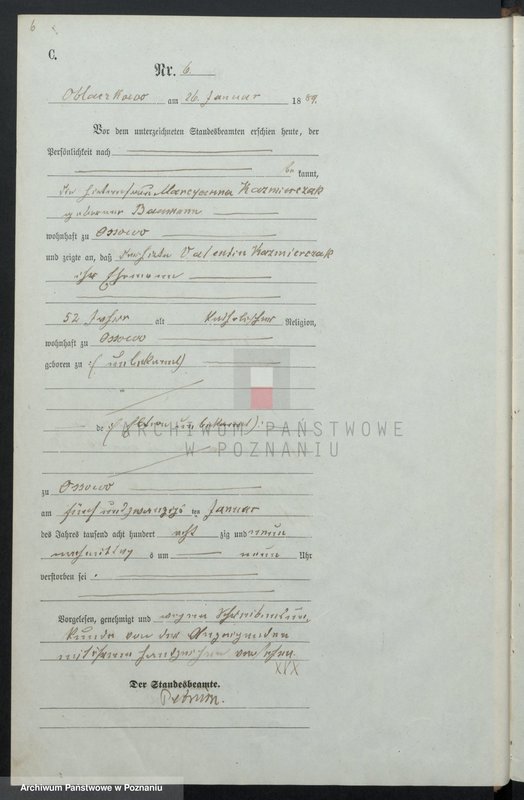 6
C.
Nr. 6.
am 26. Januar 1889.
Vor dem unterzeichneten Standesbeamten erschien heute, der
Persönlichkeit nach
bekannt,
die Marcyanna Kazmierczak
geborene Baumann
wohnhaft zu Ossowo
und zeigte an, daß Valentin Kazmierczak
ihr Ehemann
52 Jahre alt katholischer Religion,
wohnhaft zu Ossowo
geboren zu (unbekannt)
de (Eltern unbekannt)
ARCHIWUM PAŃSTWOWE
W POZNANIU
zu Ossowo
am fünf und zwanzigs ten Januar
des Jahres tausend acht hundert acht zig und neun
nachmittag s um neun Uhr
verstorben sei.
Vorgelesen, genehmigt und wegen Schreibensun-
kunde von der Anzeigenden
mit ihrem Handzeichen versehen
XXX
Der Standesbeamte.
Archiwum Państwowe w Poznaniu